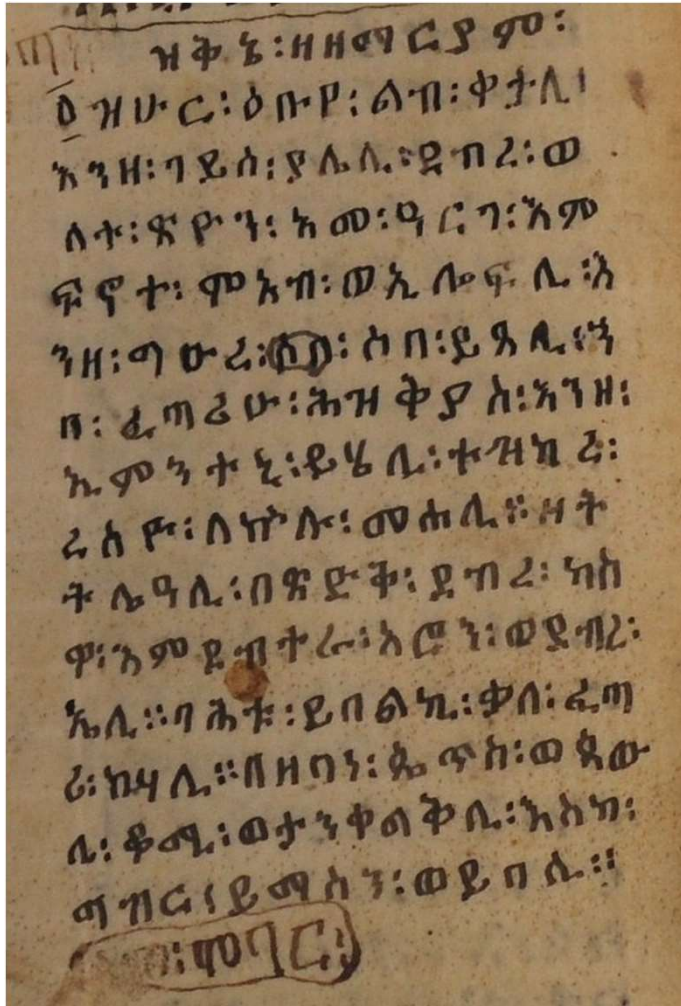 ዝቅኔ፡ዘዘማርያም፡
፩ ዝሁር፡ዕቡየ፡ልብ፡ቀታሊ፡
እንዘ፡ባይስ፡ያሌሊ፡ደብረ፡ወ
ለተ፡ጽዮን፡አመ፡ዓርገ፡እም
ፍኖተ፡ሞአብ፡ወኢሎፍሊ፡እ
ንዘ፡ማዑረ፡ ሶበ፡ይጼሊ፡ኀ
በ፡ፈጣሪሁ፡ሕዝቅያስ፡እንዘ፡
ኢምንተኒ፡ይሄሊ፡ተዝከረ፡
ረስዮ፡ለኵሉ፡መሐሊ። ዘት
ትሌዓሊ፡በጽድቅ፡ደብረ፡ካስ
ዋ፡እምደብተራ፡አሮን፡ወደብረ፡
ኤሊ።ባሕቱ፡ይበልኪ፡ቃለ፡ፈጣ
ሪ፡ከሃሊ።በዘባነ፡ጴጥስ፡ወጳው
ሊ፡ቆሚ፡ወታንቀልቅሊ፡እስከ፡
ግብር፡ይማስን፡ወይበሊ።
መባር፡